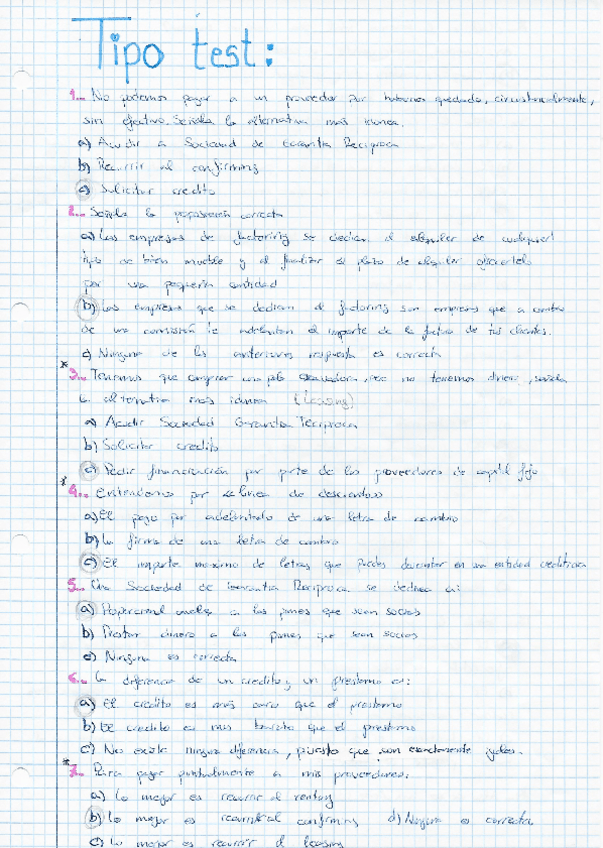 Tipo test:
1.- No podemos pagar a un proveedor por habernos quedado, circunstancialmente,
sin efectivo. Señala la alternativa más idonea.
a) Acudir a Sociedad de Garantía Reciproca
b) Recurrir al confirming
c) Solicitar credito
2.- Señala la proposición correcta
a) Las empresas de factoring se dedican al alquiler de cualquier
tipo de bien mueble y al finalizar el plazo de alquiler
por una pequeña cantidad
b) Las empresas que se dedican al factoring son empresas que a cambio
de una comisión te adelantan el importe de la factura de tus clientes.
c) Ninguna de las anteriores respuesta es correcta
3.- Tenemos que comprar una pala excavadora, pero no tenemos dinero, señala
la alternativa más idonea (Leasing)
a) Acudir Sociedad Garantía Reciproca
b) Solicitar credito
c) Pedir financiación por parte de los proveedores de capital fijo
4.- Entendemos por linea de descuentos
a) El pago por adelantado de una letra de cambio
b) La firma de una letra de cambio
c) El importe maximo de letras que puedes descontar en una entidad crediticia
5.- Una Sociedad de Garantía Reciproca se dedica a:
a) Proporcionar avales a las pymes que sean socios
b) Prestar dinero a las pymes que sean socios
c) Ninguna es correcta
6.- La diferencia de un credito y un prestamo es:
a) El credito es más caro que el prestamo
b) El credito es mas barato que el prestamo
c) No existe ninguna diferencia, puesto que son exactamente iguales.
7.- Para pagar puntualmente a mis proveedores:
a) Lo mejor es recurrir al renting
b) Lo mejor es recurrir al confirming d) Ninguna es correcta
c) Lo mejor es recurrir al leasing